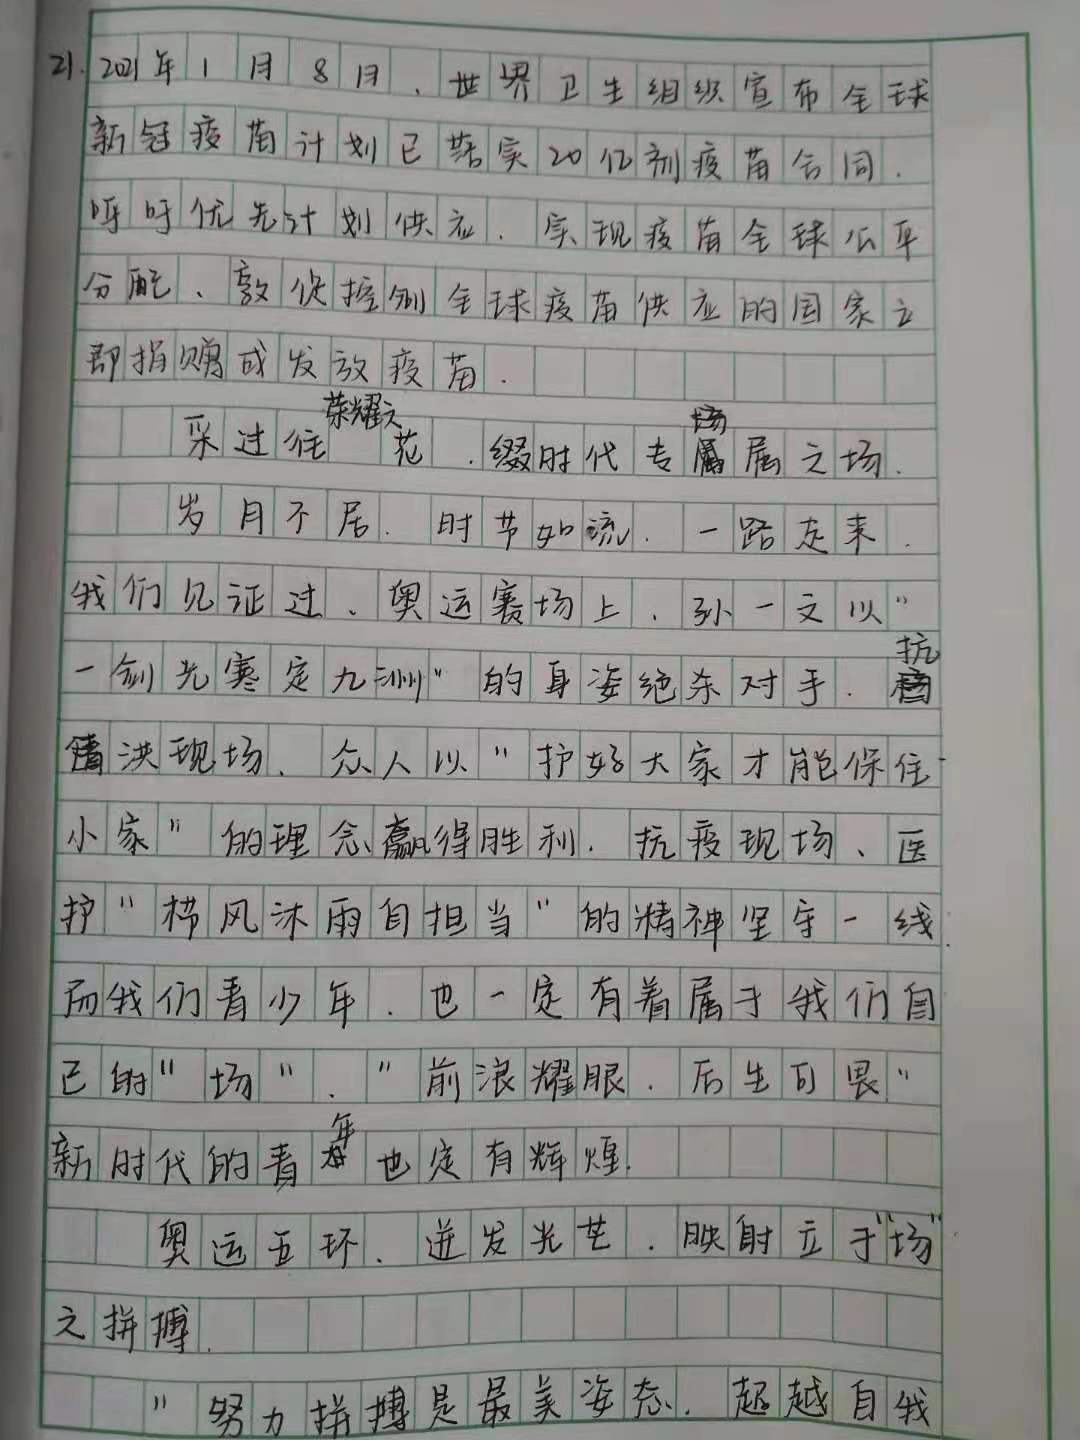 21. 2021年1月8月、世界卫生组织宣布全球
新冠疫苗计划已落实20亿剂疫苗合同.
呼吁优先计划供应.实现疫苗全球公平
分配、敦促控制全球疫苗供应的国家立
即捐赠或发放疫苗.
采过往荣耀之花.缀时代专属之场.
岁月不居.时节如流.一路走来.
我们见证过、奥运赛场上.孙一文以"
一剑光寒定九洲"的身姿绝杀对手.抗
洪现场、众人以"护好大家才能保住
小家"的理念赢得胜利.抗疫现场、医
护"栉风沐雨自担当"的精神坚守一线.
而我们青少年.也一定有着属于我们自
己的"场"."前浪耀眼.后生可畏"
新时代的青年也定有辉煌.
奥运五环.迸发光芒.映射立于"场"
之拼搏.
"努力拼搏是最美姿态.超越自我